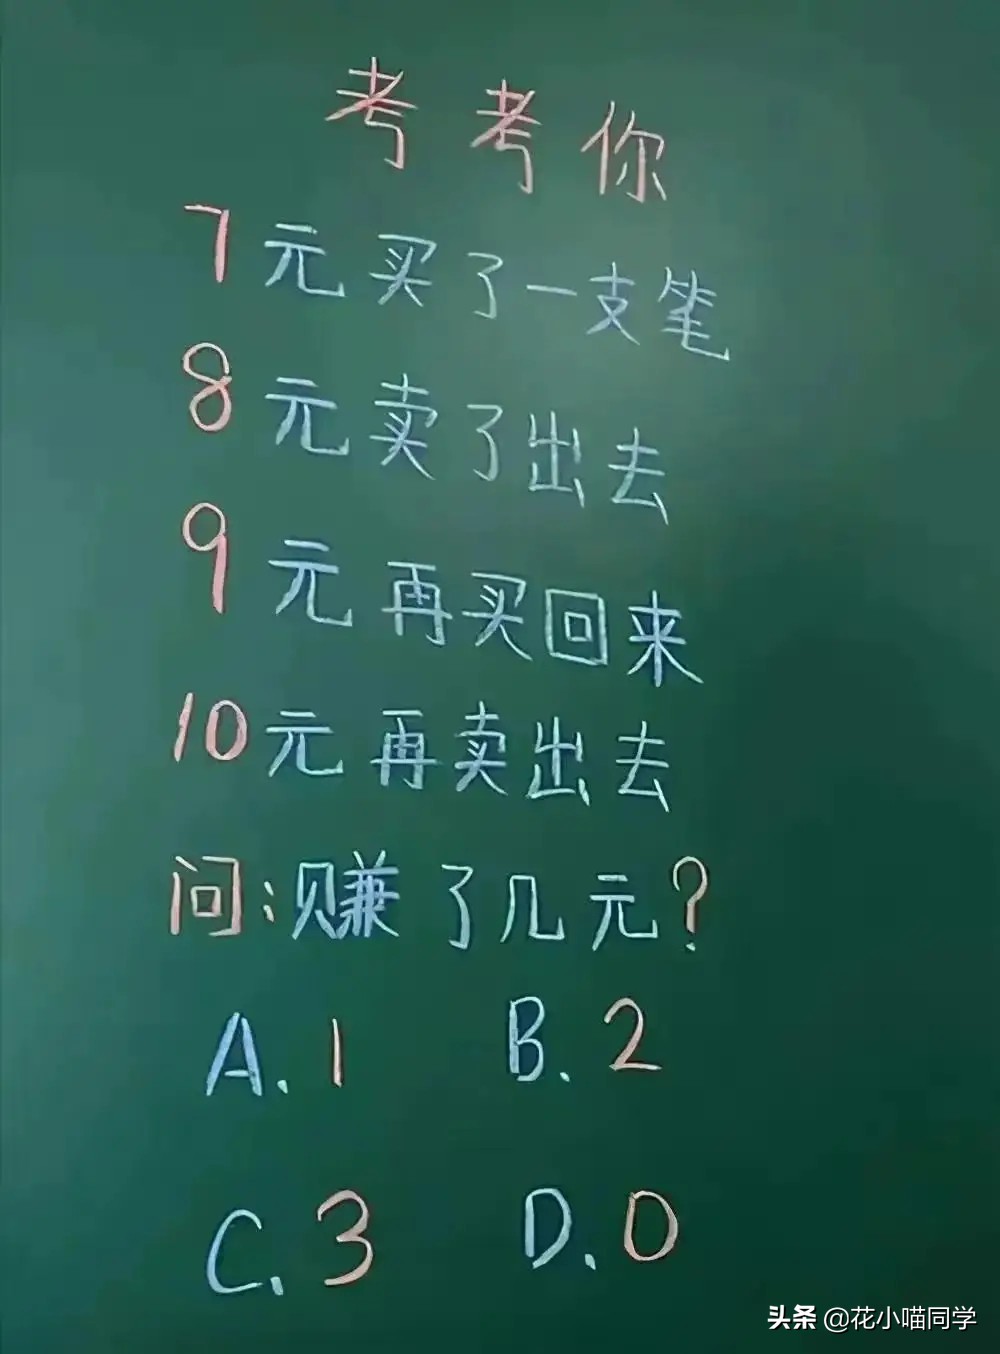 考考你
7元买了一支笔
8元卖了出去
9元再买回来
10元再卖出去
问:赚了几元?
A.1 B.2
C.3 D.0
头条 @花小喵同学